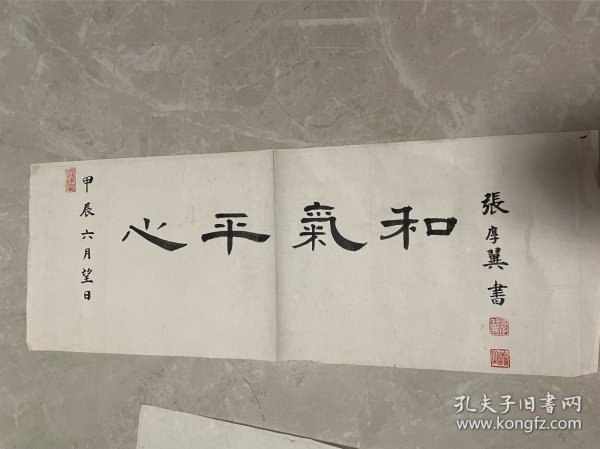 甲辰六月望日
心平氣和
張厚翼書
孔夫子旧書网
www.kongfz.com